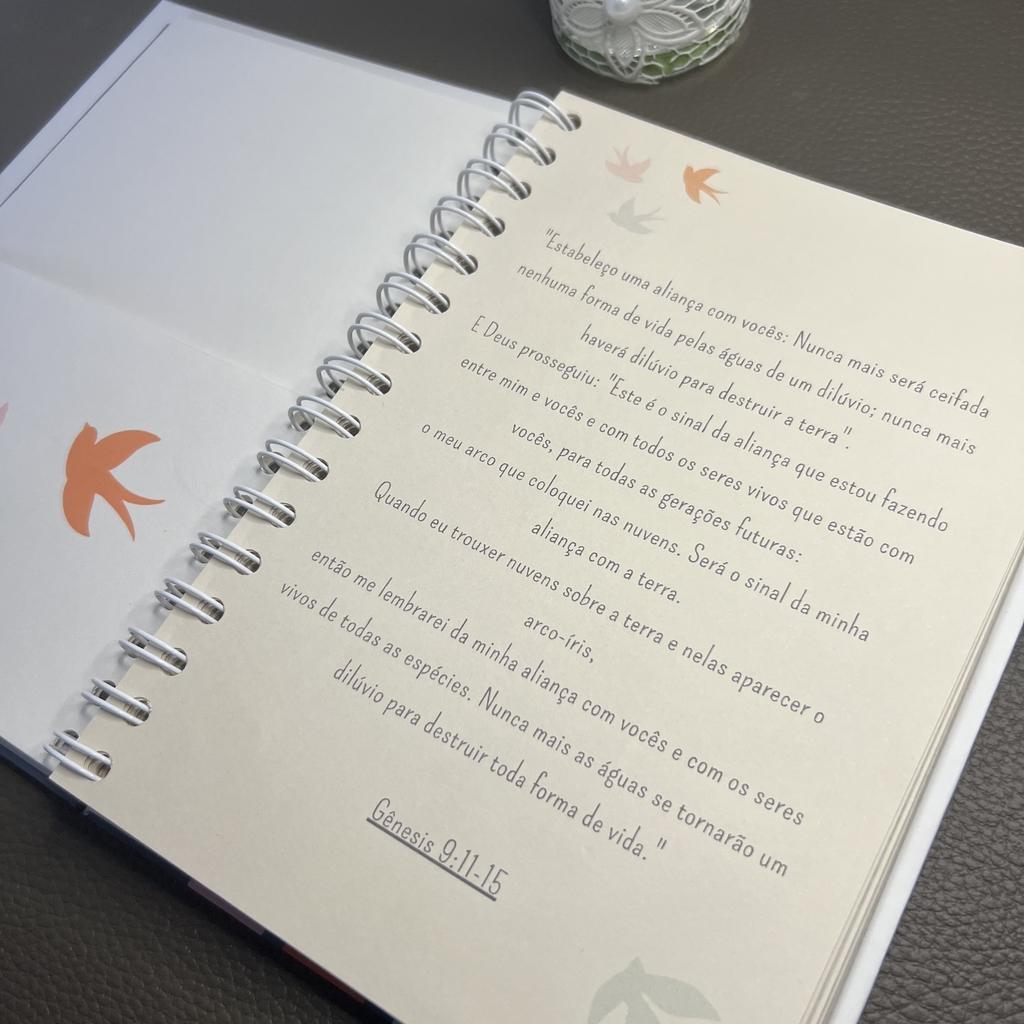 "Estabeleço uma aliança com vocês: Nunca mais será ceifada
nenhuma forma de vida pelas águas de um dilúvio; nunca mais
haverá dilúvio para destruir a terra".
E Deus prosseguiu: "Este é o sinal da aliança que estou fazendo
entre mim e vocês e com todos os seres vivos que estão com
vocês, para todas as gerações futuras:
o meu arco que coloquei nas nuvens. Será o sinal da minha
aliança com a terra.
Quando eu trouxer nuvens sobre a terra e nelas aparecer o
arco-íris,
então me lembrarei da minha aliança com vocês e com os seres
vivos de todas as espécies. Nunca mais as águas se tornarão um
dilúvio para destruir toda forma de vida."
Gênesis 9:11-15